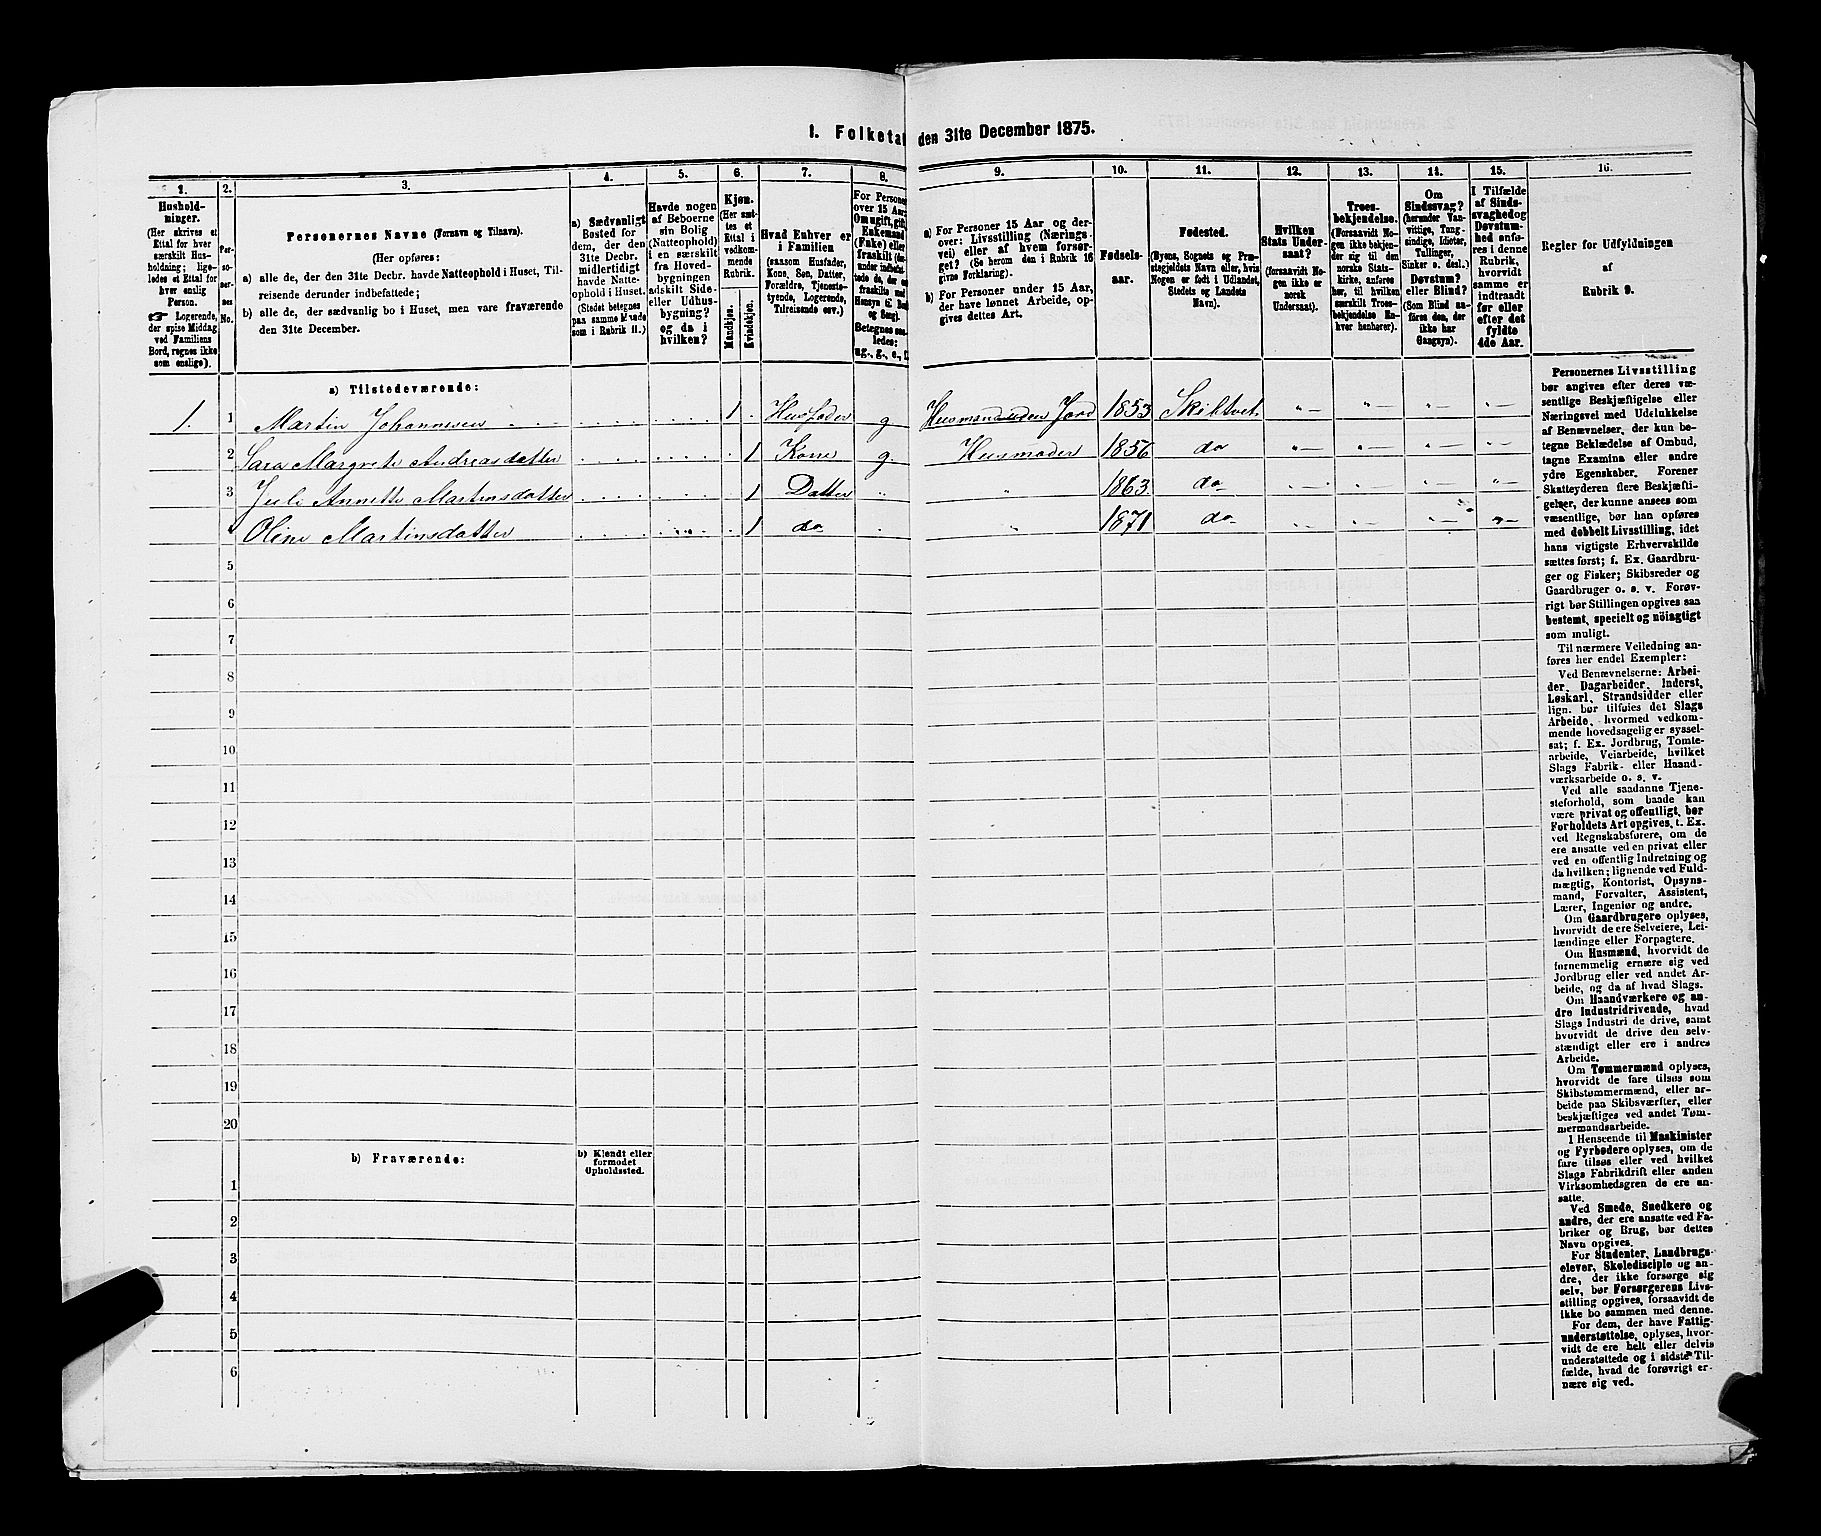 1. Folketæ
den 31te December 1875.
1.
Hushold-
ninger.
(Her skrives et
Ettal for hver
særskilt Hus-
holdning; lige-
ledes et Ettal for
hver enslig
Person.
☛ Logerende,
der spise Middag
ved Familiens
Bord, regnes ikke
som enslige).
2.
Per-
so-
ner-
nes
No.
3.
Personernes Navne (Fornavn og Tilnavn).
(Her opføres:
a) alle de, der den 31te Decbr. havde Natteophold i Huset, Til-
reisende derunder indbefattede;
b) alle de, der sædvanlig bo i Huset, men vare fraværende
den 31te December.
4.
a) Sædvanligt
Bosted for
dem, der den
31te Decbr.
midlertidigt
havde Natte-
ophold i Huset.
(Stedet betegnes
paa samme Maade
som i Rubrik II.)
5.
Havde nogen
af Beboerne
sin Bolig
(Natteophold)
i en særskilt
fra Hoved-
bygningen
adskilt Side-
eller Udhus-
bygning?
og da i
hvilken?
6.
Kjøn.
(Her sæt-
tes et
Ettal i
vedkom-
mende
Rubrik.
Mandkjøn.
Kvindekjøn.
7.
Hvad Enhver er
i Familien
(saasom Husfader,
Kone, Søn, Datter,
Forældre, Tjeneste-
tyende, Logerende,
Tilreisende osv.)
8.
For Personer
over 15 Aar:
Om ugift, gift,
Enkemand
(Enke) eller
fraskilt
Betegnes saa-
ledes:
ug., g., e., f.
9.
a) For Personer 15 Aar og der-
over: Livsstilling (Nærings-
vei) eller af hvem forsør-
get? (Se herom den i Rubrik 16
givne Forklaring).
b) For Personer under 15 Aar,
der have lønnet Arbeide, op-
gives dettes Art.
10.
Fødsels-
aar.
11.
Fødested.
(Byens, Sognets og Præ-
stegjeldets Navn eller, hvis
Nogen er født i Udlandet,
Stedets og Landets
Navn).
12.
Hvilken
Stats Under-
saat?
(forsaavidt No-
gen ikke er
norsk
Undersaat).
13.
Troes-
bekjendelse.
(Forsaavidt No-
gen ikke bekjen-
der sig til den
norske Stats-
kirke, anføres
her, til hvilken
særskilt Troes-
bekjendelse En-
hver henhører).
14.
Om
Sindssvag?
(herunder Van-
vittige, Tung-
sindige, Idioter,
Tullinger,
Sinker o. desl.)
Døvstum?
eller Blind?
(Som Blind an-
føres den, der
ikke har
Gangsyn).
15.
I Tilfælde
af Sinds-
svaghed og
Døvstum-
hed anfø-
res i denne
Rubrik,
hvorvidt
samme er
indtraadt
før eller
efter det
fyldte
4de Aar.
16.
Regler for Udfyldningen
af
Rubrik 9.
a) Tilstedeværende:
1. 1 Martin Johannesen 1 Husfader g Husmand uden Jord 1853 Skibtvet
2 Sara Margrete Andreasdatter 1 Kone g. Husmoder 1856 do
3 Juli Annette Martinsdatter 1 Datter " " 1863. do
4 Oline Martinsdatter 1 do " 1871 do
5
6
7
8
9
10
11
12
13
14
15
16
17
18
19
20
b) Fraværende:
b) Kjendt eller
formodet
Opholdssted.
1
2
3
4
5
6
Personernes Livsstilling
bør angives efter deres væ-
sentlige Beskjæftigelse eller
Næringsvei med Udelukkelse
af Benævnelser, der kun be-
tegne Beklædelse af Ombud,
tagne Examina eller andre
ydre Egenskaber. Forener
Skatteyderen flere Beskjæfti-
gelser, der kunne ansees som
væsentlige, bør han opføres
med dobbelt Livsstilling, idet
hans vigtigste Erhvervskilde
sættes først; f. Ex. Gaardbru-
ger og Fisker; Skibsreder og
Gaardbruger o. s. v. Forøv-
rigt bør Stillingen opgives saa
bestemt, specielt og nöiagtigt
som muligt.
Til nærmere Veiledning an-
føres her endel Exempler:
Ved Benævnelserne: Arbei-
der, Dagarbeider, Inderst,
Løskarl, Strandsidder eller
lign. bør tilføies det Slags
Arbeide, hvormed vedkom-
mende hovedsagelig er syssel-
sat; f. Ex. Jordbrug, Tomte-
arbeide, Veiarbeide, hvilket
Slags Fabrik- eller Haand-
værksarbeide o. s. v.
Ved alle saadanne Tjene-
steforhold, som baade kan
være privat og offentligt, bør
Forholdets Art opgives, f. Ex.
ved Regnskabsførere, om de
ere ansatte ved en privat eller
ved en offentlig Indretning og
da hvilken; lignende ved Fuld-
mægtig, Kontorist, Opsyns-
mand, Forvalter, Assistent,
Lærer, Ingeniør og andre.
Om Gaardbrugere oplyses,
hvorvidt de ere Selveiere, Lei-
lændinge eller Forpagtere.
Om Husmænd, hvorvidt de
fornemmelig ernære sig ved
Jordbrug eller ved andet Ar-
beide, og da af hvad Slags.
Om Haandværkere og an-
dre Industridrivende, hvad
Slags Industri de drive, samt
hvorvidt de drive den selv-
stændigt eller ere i andres
Arbeide.
Om Tømmermænd oplyses,
hvorvidt de fare tilsøs som
Skibstømmermænd, eller ar-
beide paa Skibsværfter, eller
beskjæftiges ved andet Tøm-
mermandsarbeide.
I Henseende til Maskinister
og Fyrbødere oplyses, om de
fare tilsøs eller ved hvilket
Slags Fabrikdrift eller anden
Virksomhedsgren de ere an-
satte.
Ved Smede, Snedkere og
andre, der ere ansatte ved Fa-
briker og Brug, bør dettes
Navn opgives.
For Studenter, Landbrugs-
elever, Skoledisciple og an-
dre, der ikke forsørge sig
selv, bør Forsørgerens Livs-
stilling opgives, forsaavidt de
ikke bo sammen med denne.
For dem, der have Fattig-
understøttelse, oplyses, hvor-
vidt de ere helt eller delvis
understøttede og i sidste Til-
fælde, hvad de forøvrigt er-
nære sig ved.